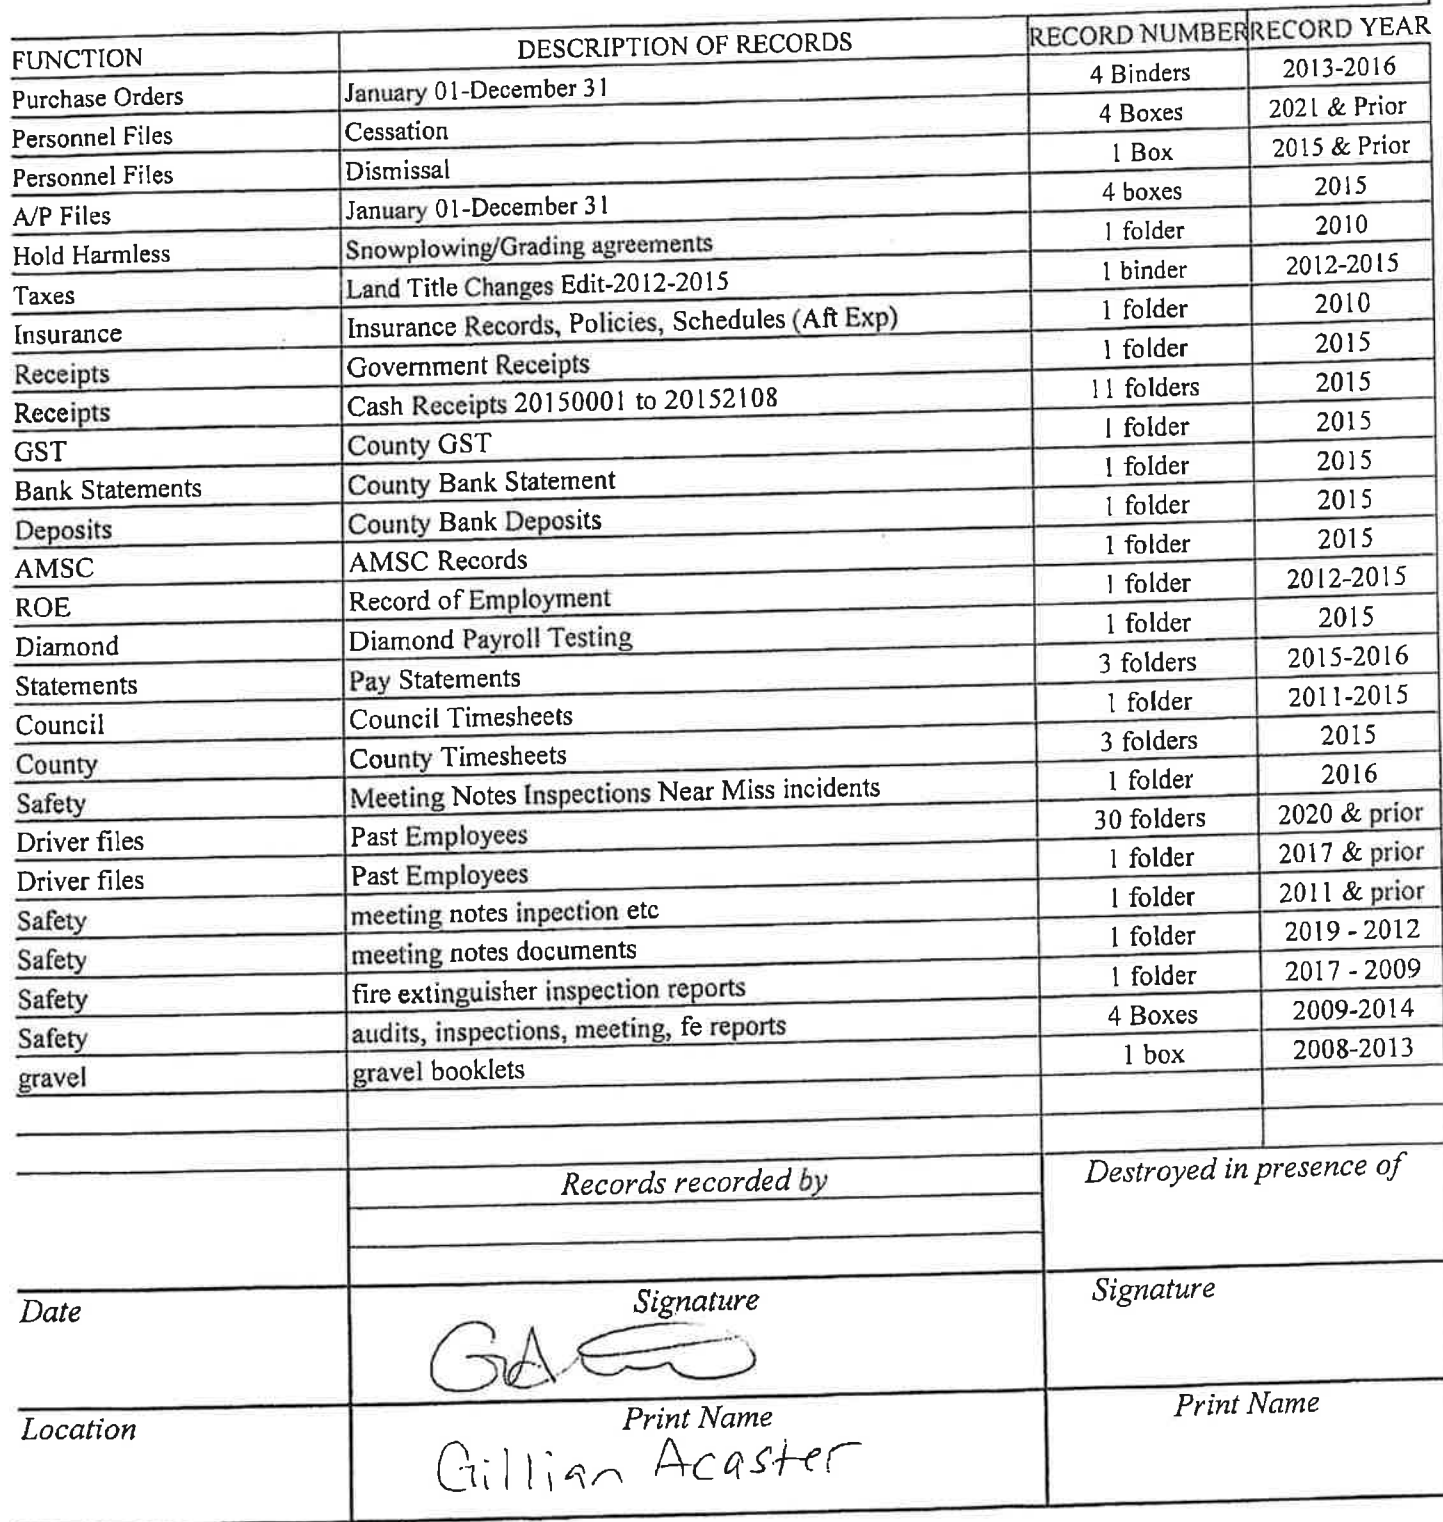 FUNCTION DESCRIPTION OF RECORDS RECORD NUMBER RECORD YEAR
Purchase Orders January 01-December 31 4 Binders 2013-2016
Personnel Files Cessation 4 Boxes 2021 & Prior
Personnel Files Dismissal 1 Box 2015 & Prior
A/P Files January 01-December 31 4 boxes 2015
Hold Harmless Snowplowing/Grading agreements 1 folder 2010
Taxes Land Title Changes Edit-2012-2015 1 binder 2012-2015
Insurance Insurance Records, Policies, Schedules (Aft Exp) 1 folder 2010
Receipts Government Receipts 1 folder 2015
Receipts Cash Receipts 20150001 to 20152108 11 folders 2015
GST County GST 1 folder 2015
Bank Statements County Bank Statement 1 folder 2015
Deposits County Bank Deposits 1 folder 2015
AMSC AMSC Records 1 folder 2015
ROE Record of Employment 1 folder 2012-2015
Diamond Diamond Payroll Testing 1 folder 2015
Statements Pay Statements 3 folders 2015-2016
Council Council Timesheets 1 folder 2011-2015
County County Timesheets 3 folders 2015
Safety Meeting Notes Inspections Near Miss incidents 1 folder 2016
Driver files Past Employees 30 folders 2020 & prior
Driver files Past Employees 1 folder 2017 & prior
Safety meeting notes inpection etc 1 folder 2011 & prior
Safety meeting notes documents 1 folder 2019 - 2012
Safety fire extinguisher inspection reports 1 folder 2017 - 2009
Safety audits, inspections, meeting, fe reports 4 Boxes 2009-2014
gravel gravel booklets 1 box 2008-2013
Records recorded by Destroyed in presence of
Date Signature Signature
Location Print Name Print Name
Gillian Acaster